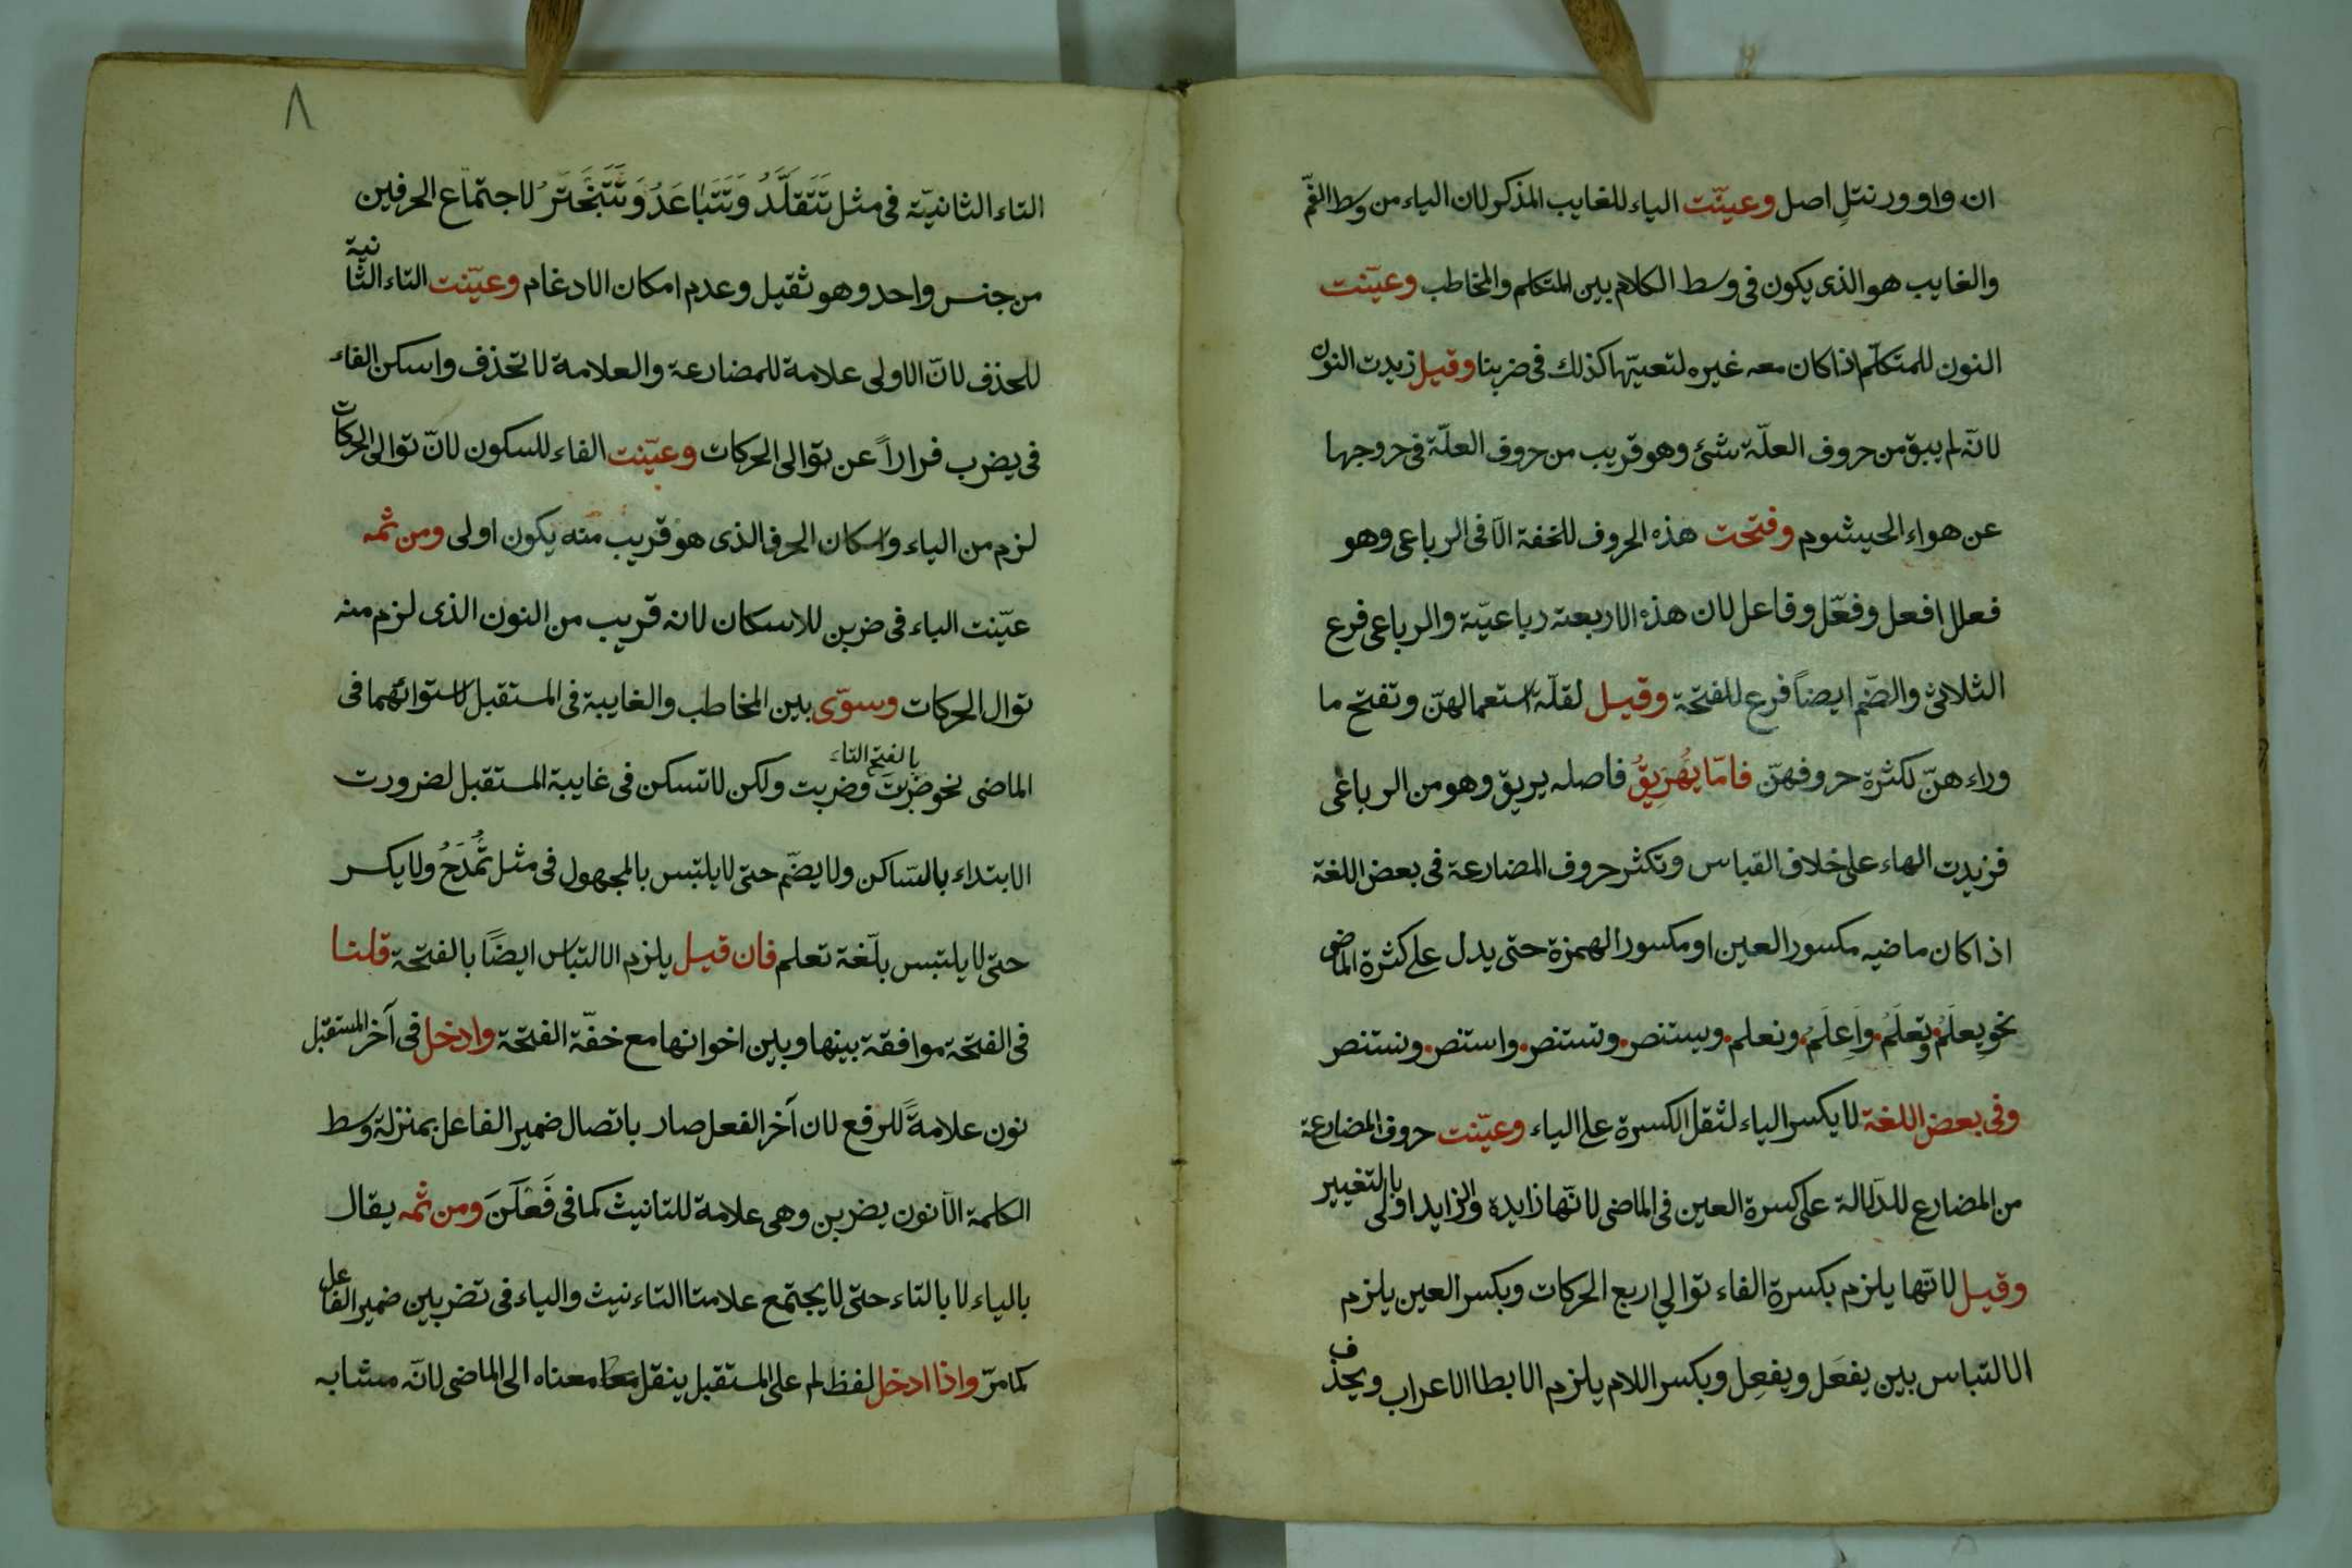 ان واو ورنتلِ اصل وعيّنت الياء للغايب المذكر لان الياء من وسط الفمّ
والغايب هو الذى يكون فى وسط الكلام بين المتكلم والمخاطب وعيّنت
النون للمتكلّم اذا كان معه غيره لتعيّنها كذلك فى ضربنا وقيل زيدت النون
لانّه لم يبق من حروف العلّة شئ وهو قريب من حروف العلّة فى خروجها
عن هواء الخيشوم وفتحت هذه الحروف للخفة الّا فى الرباعى وهو
فعلل افعل وفعّل وفاعل لان هذه الاربعة رباعيّة والرباعى فرع
الثلاثى والضّم ايضاً فرع للفتحة وقيل لقلّة استعمالهنّ وتفتح ما
وراءهنّ لكثرة حروفهنّ فامّا يُهَرِيقُ فاصله يريق وهو من الرباعى
فزيدت الهاء على خلاف القياس وتكثر حروف المضارعة فى بعض اللغة
اذا كان ماضيه مكسور العين او مكسور الهمزة حتى يدل على كثرة الماضى
نحو يِعلَمُ وتِعلَمُ واِعلَمُ ونعلم ويستنصر وتستنصر واستنصر ونستنصر
وفى بعض اللغة لا يكسر الياء لثقل الكسرة على الياء وعيّنت حروف المضارعة
من المضارع للدّلالة على كسرة العين فى الماضى لانّها زايدة والزايد اولى بالتغيير
وقيل لانّها يلزم بكسرة الفاء توالي اربع الحركات وبكسر العين يلزم
الالتباس بين يفعَل ويفعِل وبكسر اللام يلزم الابطا الاعراب ويحذف
٨
التاء الثانيّة فى مثل تَتَقلَّدُ وَتَتَبَاعَدُ وَتَتَبَخْتَرُ لاجتماع الحرفين
من جنس واحد وهو ثقيل وعدم امكان الادغام وعيّنت التاء الثانية
للحذف لانّ الاولى علامة للمضارعة والعلامة لا تحذف واسكن الفاء
فى يضرب فراراً عن توالى الحركات وعيّنت الفاء للسكون لانّ توالى الحركات
لزم من الياء واسكان الحرف الذى هو قريب منه يكون اولى ومن ثمه
عيّنت الباء فى ضربن للاسكان لانه قريب من النون الذى لزم منه
توال الحركات وسوّى بين المخاطب والغايبة فى المستقبل لاستوائهما فى
الماضى نحو ضربتَ بالفتح التاء وضربت ولكن لا تسكن فى غايبة المستقبل لضرورت
الابتداء بالسّاكن ولا يضّم حتى لا يلتبس بالمجهول فى مثل تُمْدَحُ ولا يكسر
حتى لا يلتبس بلّغة تعلم فان قيل يلزم الالتباس ايضًا بالفتحة قلنا
فى الفتحة موافقة بينها وبين اخواتها مع خفّة الفتحة وادخل فى آخر المستقبل
نون علامةً للرفع لان آخر الفعل صار باتصال ضمير الفاعل بمنزلة وسط
الكلمة الّا نون يضربن وهى علامة للتانيث كما فى فَعَلَنَ ومن ثمه يقال
بالياء لا بالتاء حتى لا يجتمع علامتا التاءنيث والياء فى تضربين ضمير الفاعل
كما مرّ واذا ادخل لفظ لم على المستقبل ينقل معناه الى الماضى لانّه مشابه